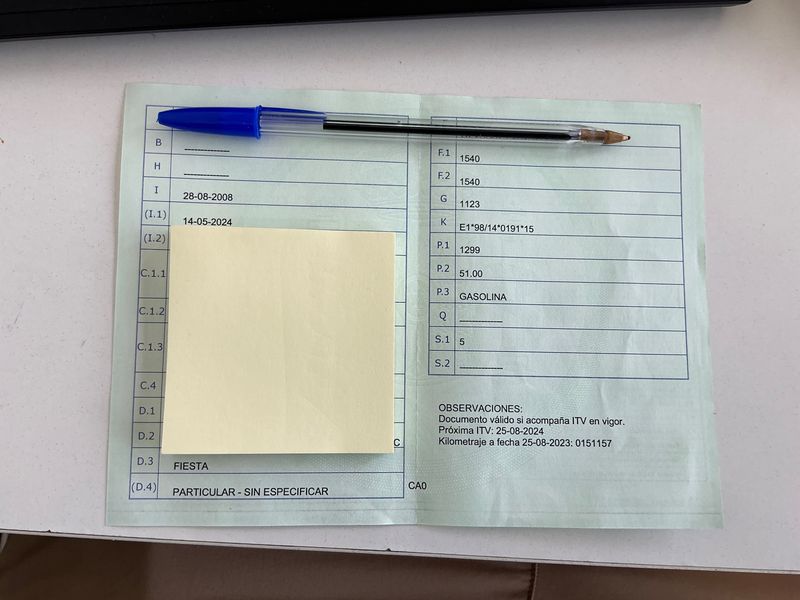 B -------------
H -------------
I 28-08-2008
(I.1) 14-05-2024
(I.2)
C.1.1
C.1.2
C.1.3
C.4
D.1
D.2 C
D.3 FIESTA
(D.4) PARTICULAR - SIN ESPECIFICAR CA0
F.1 1540
F.2 1540
G 1123
K E1*98/14*0191*15
P.1 1299
P.2 51.00
P.3 GASOLINA
Q -------------
S.1 5
S.2 -------------
OBSERVACIONES:
Documento válido si acompaña ITV en vigor.
Próxima ITV: 25-08-2024
Kilometraje a fecha 25-08-2023: 0151157